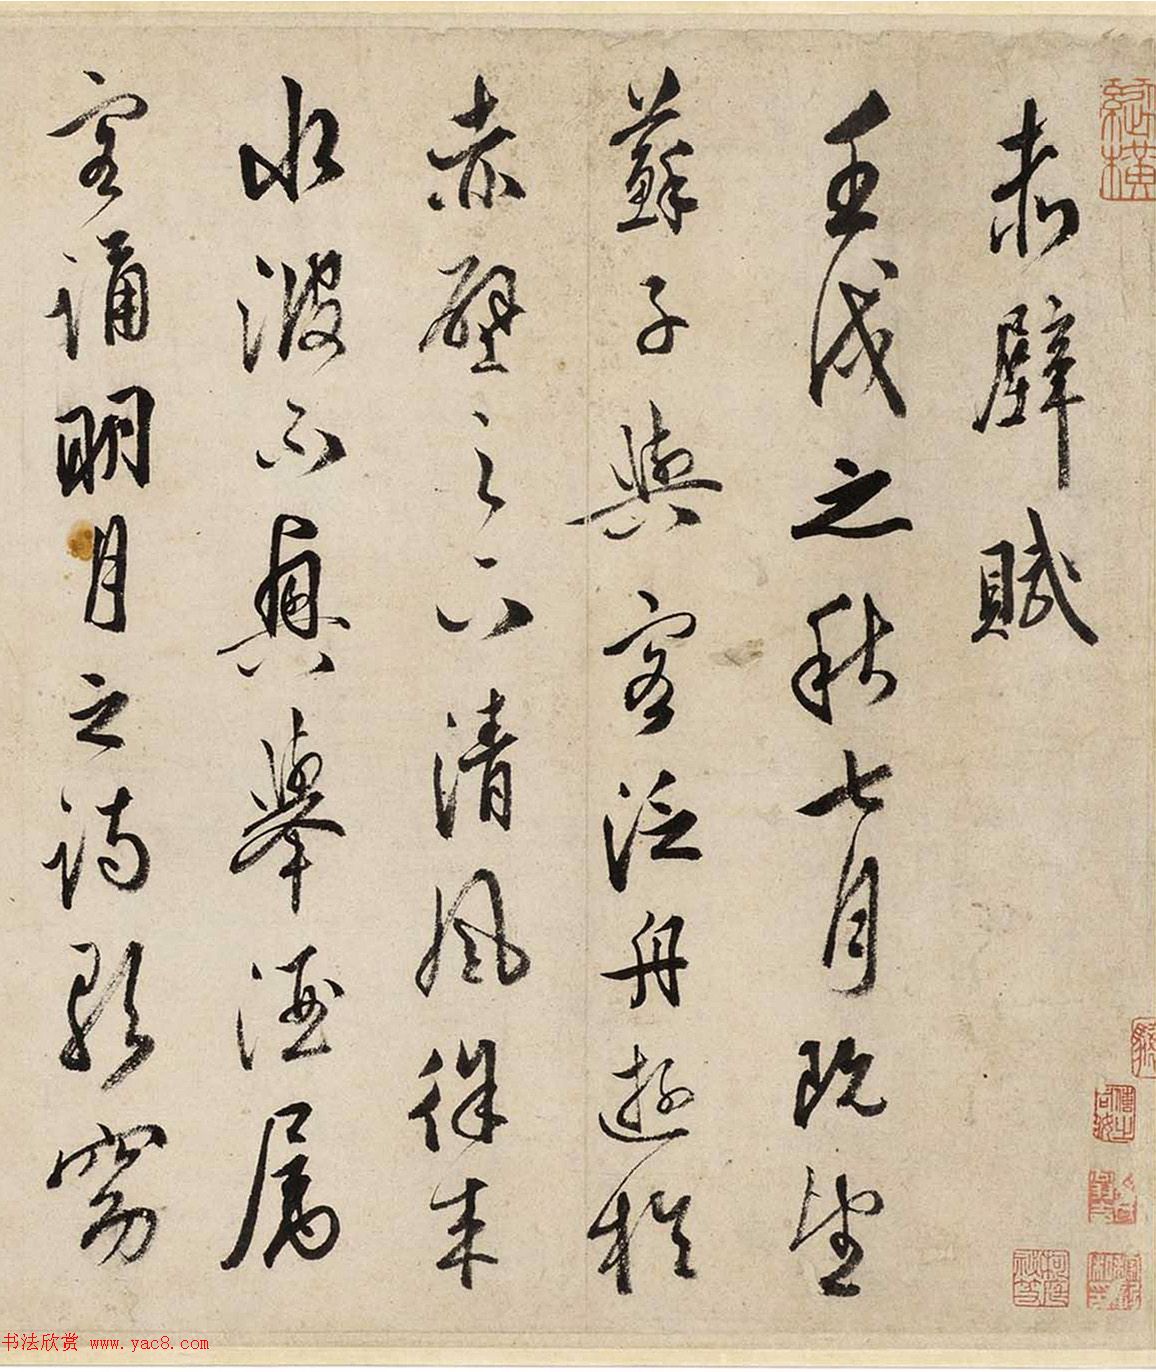 赤壁賦
壬戌之秋七月既望
蘇子與客泛舟遊於
赤壁之下清風徐來
水波不興舉酒属
客誦明月之詩歌窈
縱橫
书法欣赏 www.yac8.com